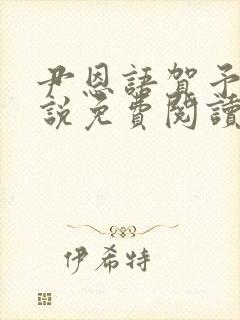 尹恩語賀予
說免費閱讀
伊希特